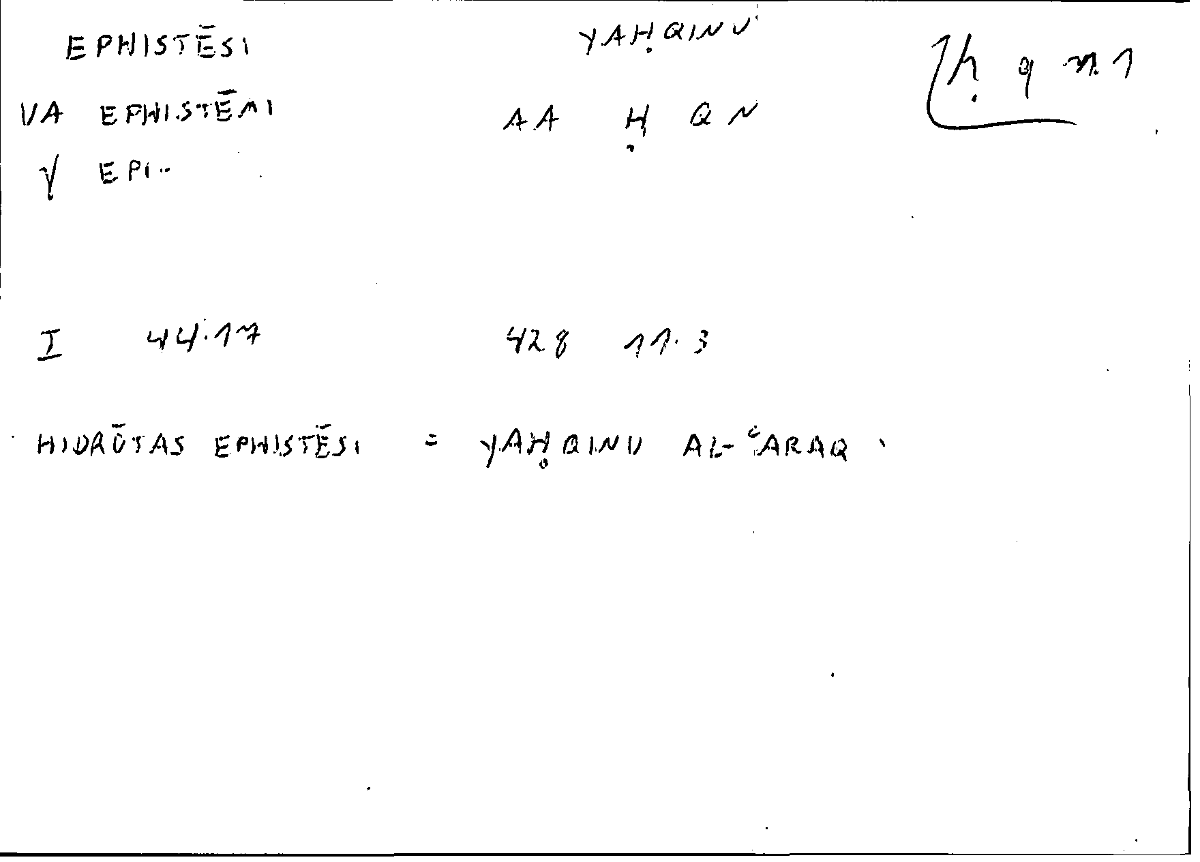 EPHISTĒSI YAḤQINU ḥ q n 1
VA EPHISTĒMI AA Ḥ Q N
V EPI..
I 44.17 428 11.3
HIDRŌTAS EPHISTĒSI = YAḤQINU AL-ʿARAQ